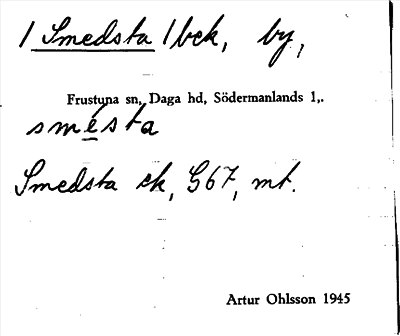 / Smedsta / bek, by,
Frustuna sn, Daga hd, Södermanlands l,.
smésta
Smedsta ek, G67, mt.
Artur Ohlsson 1945